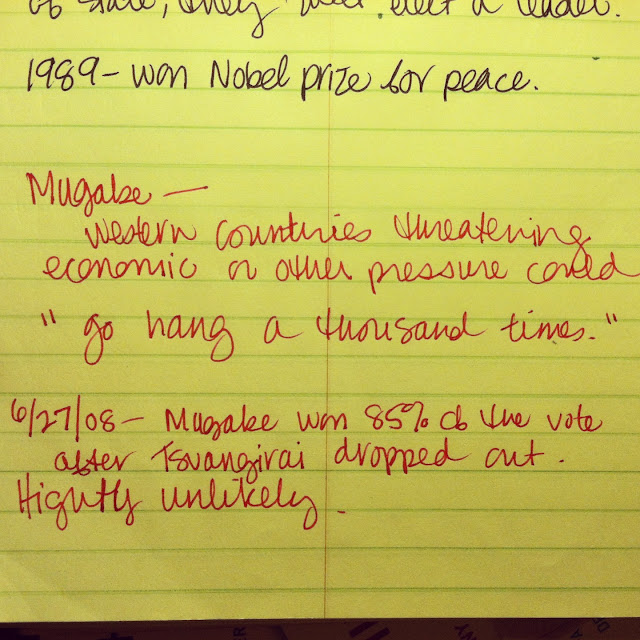 of state, they will elect a leader.
1989 - won Nobel prize for peace.
Mugabe —
western countries threatening
economic or other pressure could
"go hang a thousand times."
6/27/08 - Mugabe won 85% of the vote
after Tsvangirai dropped out.
Hightly unlikely.